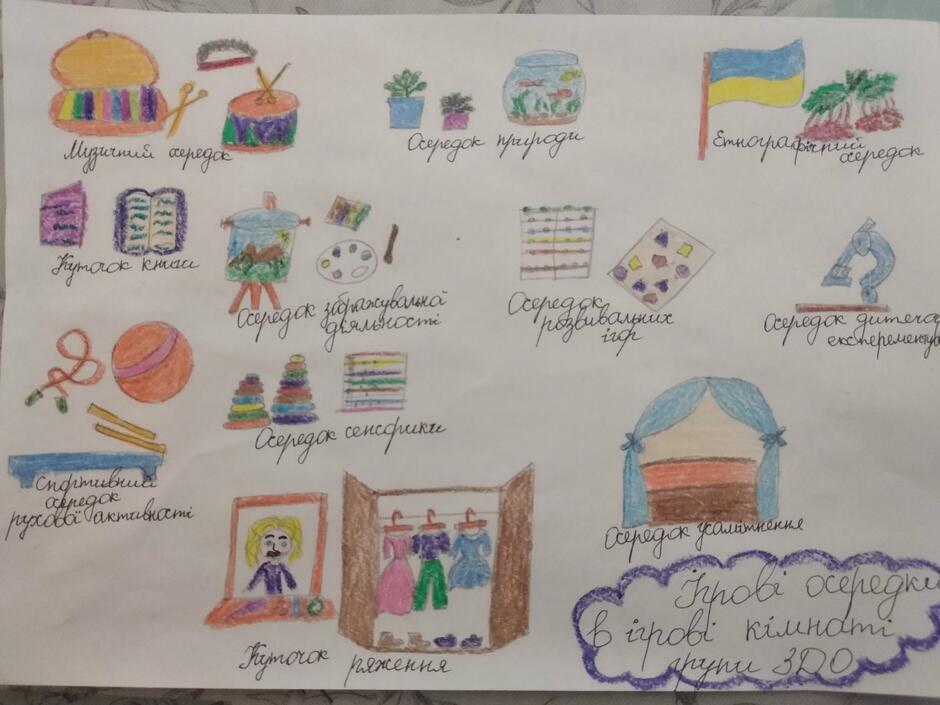 Музичний осередок
Осередок природи
Етнографічний
осередок
Куточок книги
Осередок зображувальної
діяльності
Осередок
розвивальних
ігор
Осередок дитячо
експерементув
Осередок сенсорики
Спортивний
осередок
рухової активності
Осередок усамітнення
Куточок ряження
Ігрові осередки
в ігрові кімнаті
групи ЗДО